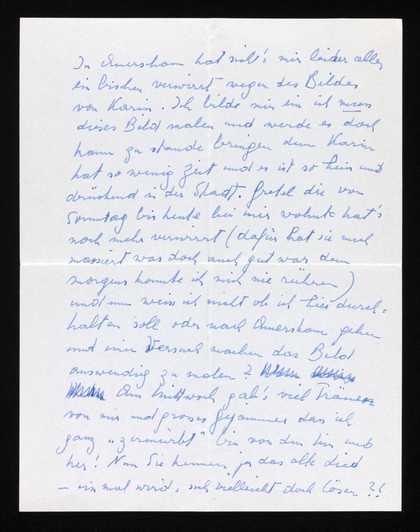 In Amersham hat sich's mir leider alles
ein bischen verwirrt wegen des Bildes
von Karin. Ich bilde mir ein ich muss
dieses Bild malen und werde es doch
kaum zu stande bringen denn Karin
hat so wenig Zeit und es ist so heiss und
drückend in der Stadt. Gretel die von
Sonntag bis heute bei mir wohnte hat's
noch mehr verwirrt (dafür hat sie mich
massiert was doch auch gut war denn
morgens konnte ich mich nie rühren)
und nun weiss ich nicht ob ich hier durch=
halten soll oder nach Amersham gehen
und einen Versuch machen das Bild
auswendig zu malen?
Am Mittwoch gab's viel Tränen
von mir und grosses Gejammer das ich
ganz „zermürbt" bin von dem hin und
her! Nun Sie kennen ja das alte Lied
– ein mal wird, sich vielleicht doch lösen ?!